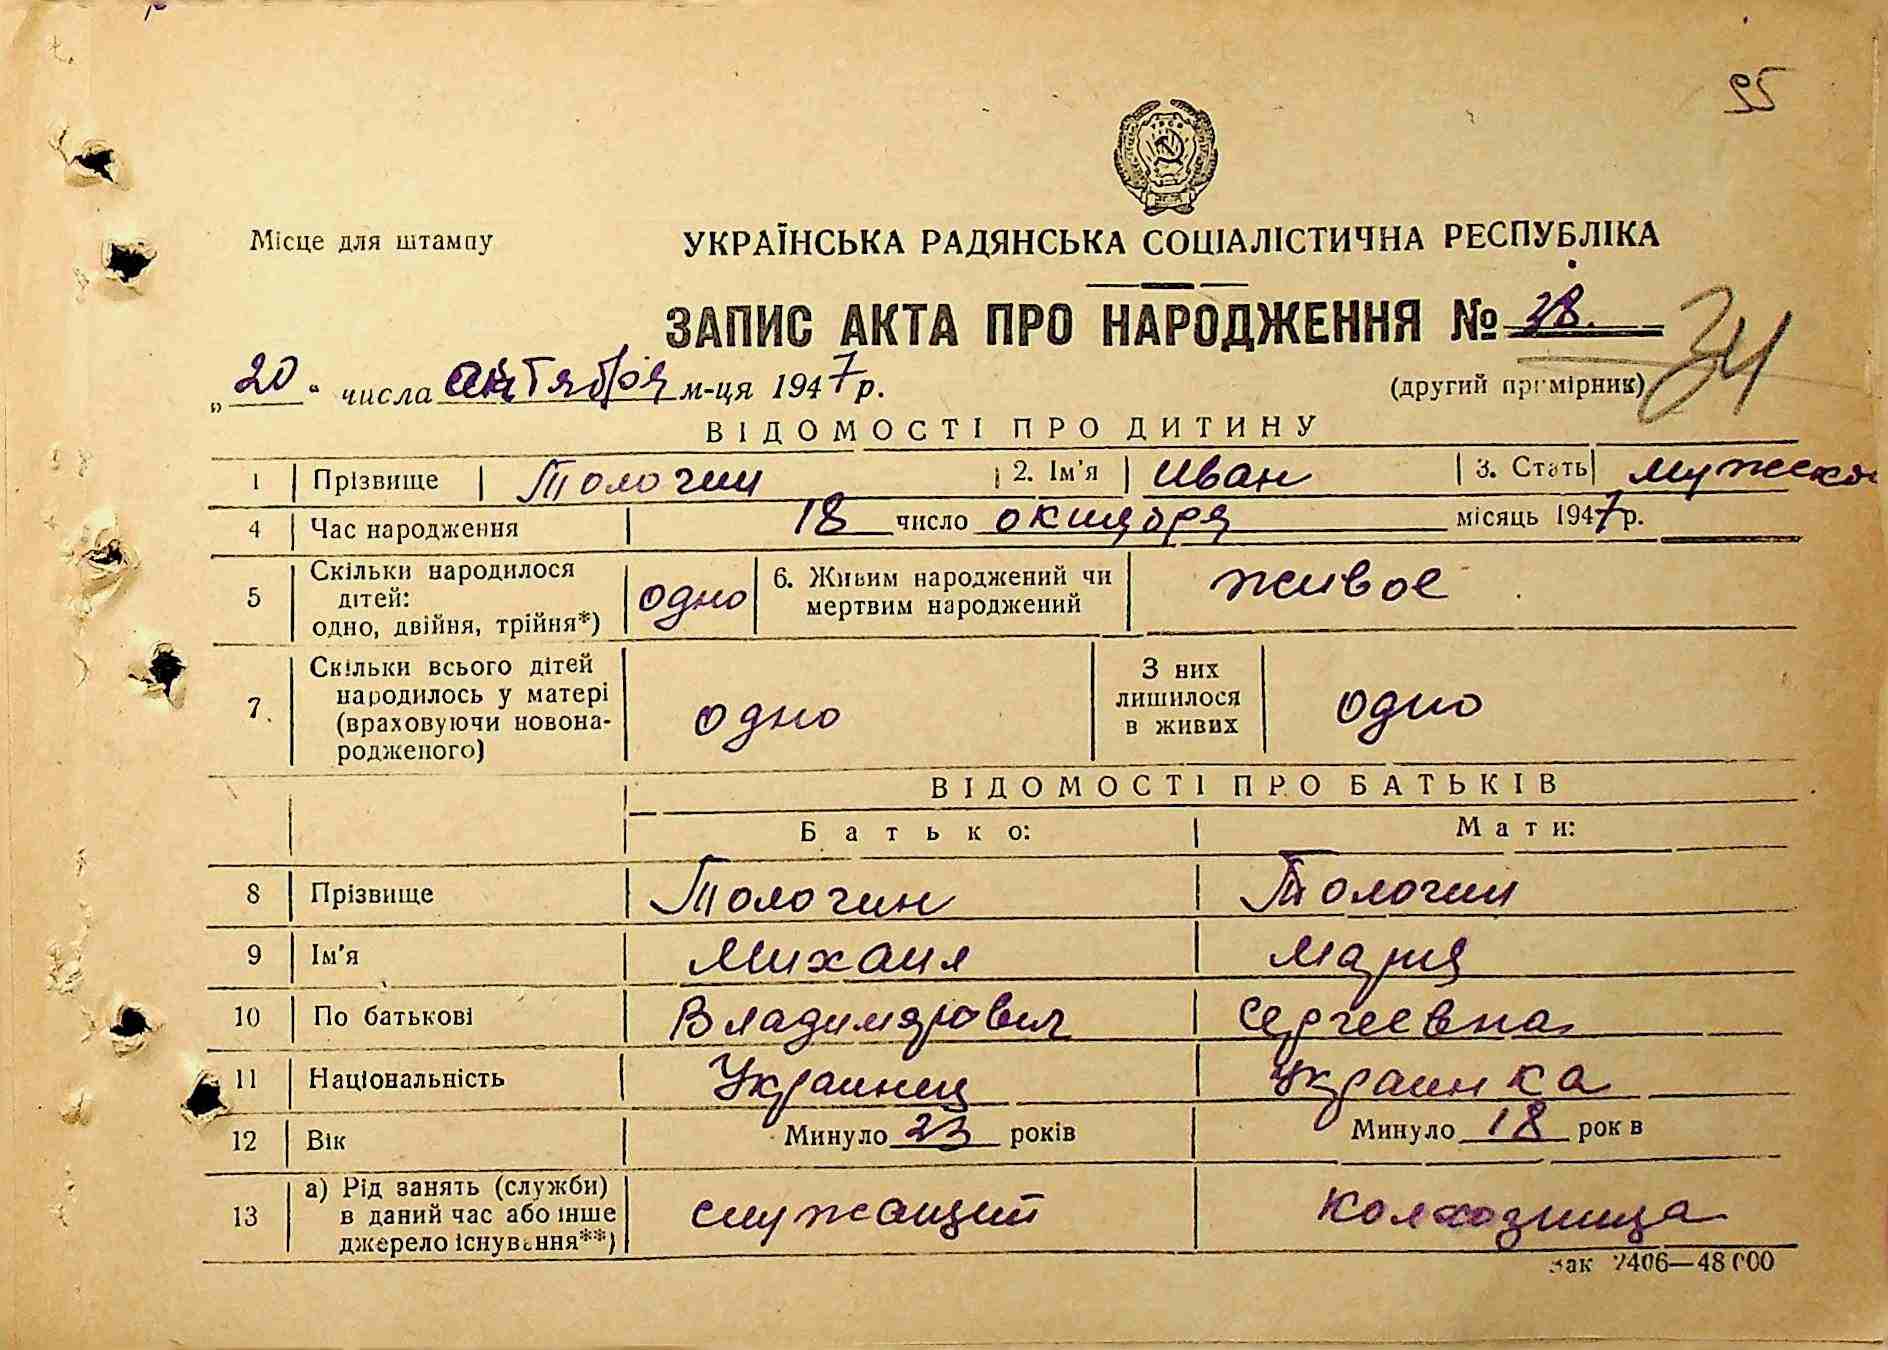 95
Місце для штампу
УКРАЇНСЬКА РАДЯНСЬКА СОЦІАЛІСТИЧНА РЕСПУБЛІКА
ЗАПИС АКТА ПРО НАРОДЖЕННЯ № 38.
34
„20“ числа октября м-ця 1947 р.
(другий примірник)
ВІДОМОСТІ ПРО ДИТИНУ
1 Прізвище Толочин 2. Ім'я Иван 3. Стать мужско
4 Час народження 18 число октября місяць 1947 р.
5 Скільки народилося дітей: одно, двійня, трійня*) одно 6. Живим народжений чи мертвим народжений живое
7. Скільки всього дітей народилось у матері (враховуючи новонародженого) одно З них лишилося в живих одно
ВІДОМОСТІ ПРО БАТЬКІВ
Батько: Мати:
8 Прізвище Толочин Толочин
9 Ім'я Михаил Мария
10 По батькові Владимирович Сергеевна
11 Національність Украинец Украинка
12 Вік Минуло 23 років Минуло 18 рок в
13 а) Рід занять (служби) в даний час або інше джерело існування**) служащий Колхозница
Зак 2406—48 000